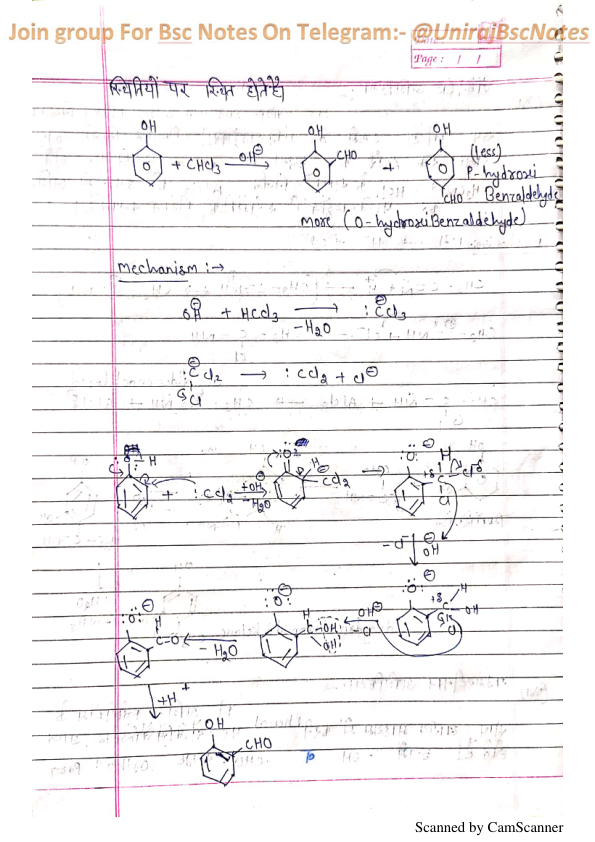 Join group For Bsc Notes On Telegram:- @UnirajBscNotes
Page : / /
स्थितियों पर स्थित होते है।
OH OH OH
+ CHCl3 OH⊖ CHO + (less)
P-hydroxi
CHO Benzaldehyde
more (O-hydroxiBenzaldehyde)
Mechanism :→
⊖OH + HCCl3 → :⊖CCl3
-H2O
:⊖CCl2 → :CCl2 + Cl⊖
Cl
O H :O: H ⊖ :O: ⊖ H
+ :CCl2 +OH⊖ CCl2 → +δ C Cl δ
-H2O Cl
-Cl ⊖OH
:O: ⊖ :O: ⊖ :O: ⊖
H H +δ H
C-O C-OH OH⊖ C-OH
- H2O OH -Cl Cl
+H+
OH
CHO
Scanned by CamScanner